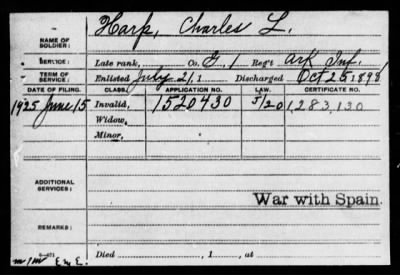 NAME OF SOLDIER: Harp, Charles L.
SERVICE: Late rank, Co. G, 1 Reg't Ark Inf.
TERM OF SERVICE: Enlisted July 2, 1 Discharged Oct 25, 1898
DATE OF FILING. CLASS. APPLICATION NO. LAW. CERTIFICATE NO.
1925 June 15 Invalid, 1520430 5/20 1,283,130
Widow,
Minor,
ADDITIONAL SERVICES:
War with Spain.
REMARKS:
Died , 1 , at